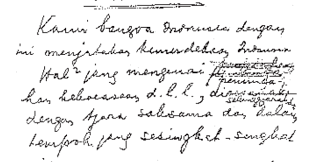 Kami bangsa Indonesia dengan
ini menjatakan kemerdekaan Indonesia
Hal² jang mengenai
kan kekoeasaan d.l.l., diselenggarakan
dengan tjara saksama dan dalam
tempoh jang sesingkat-singkat